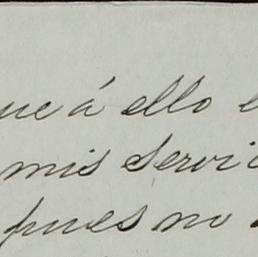 ue á ello e
mis servic
pues no